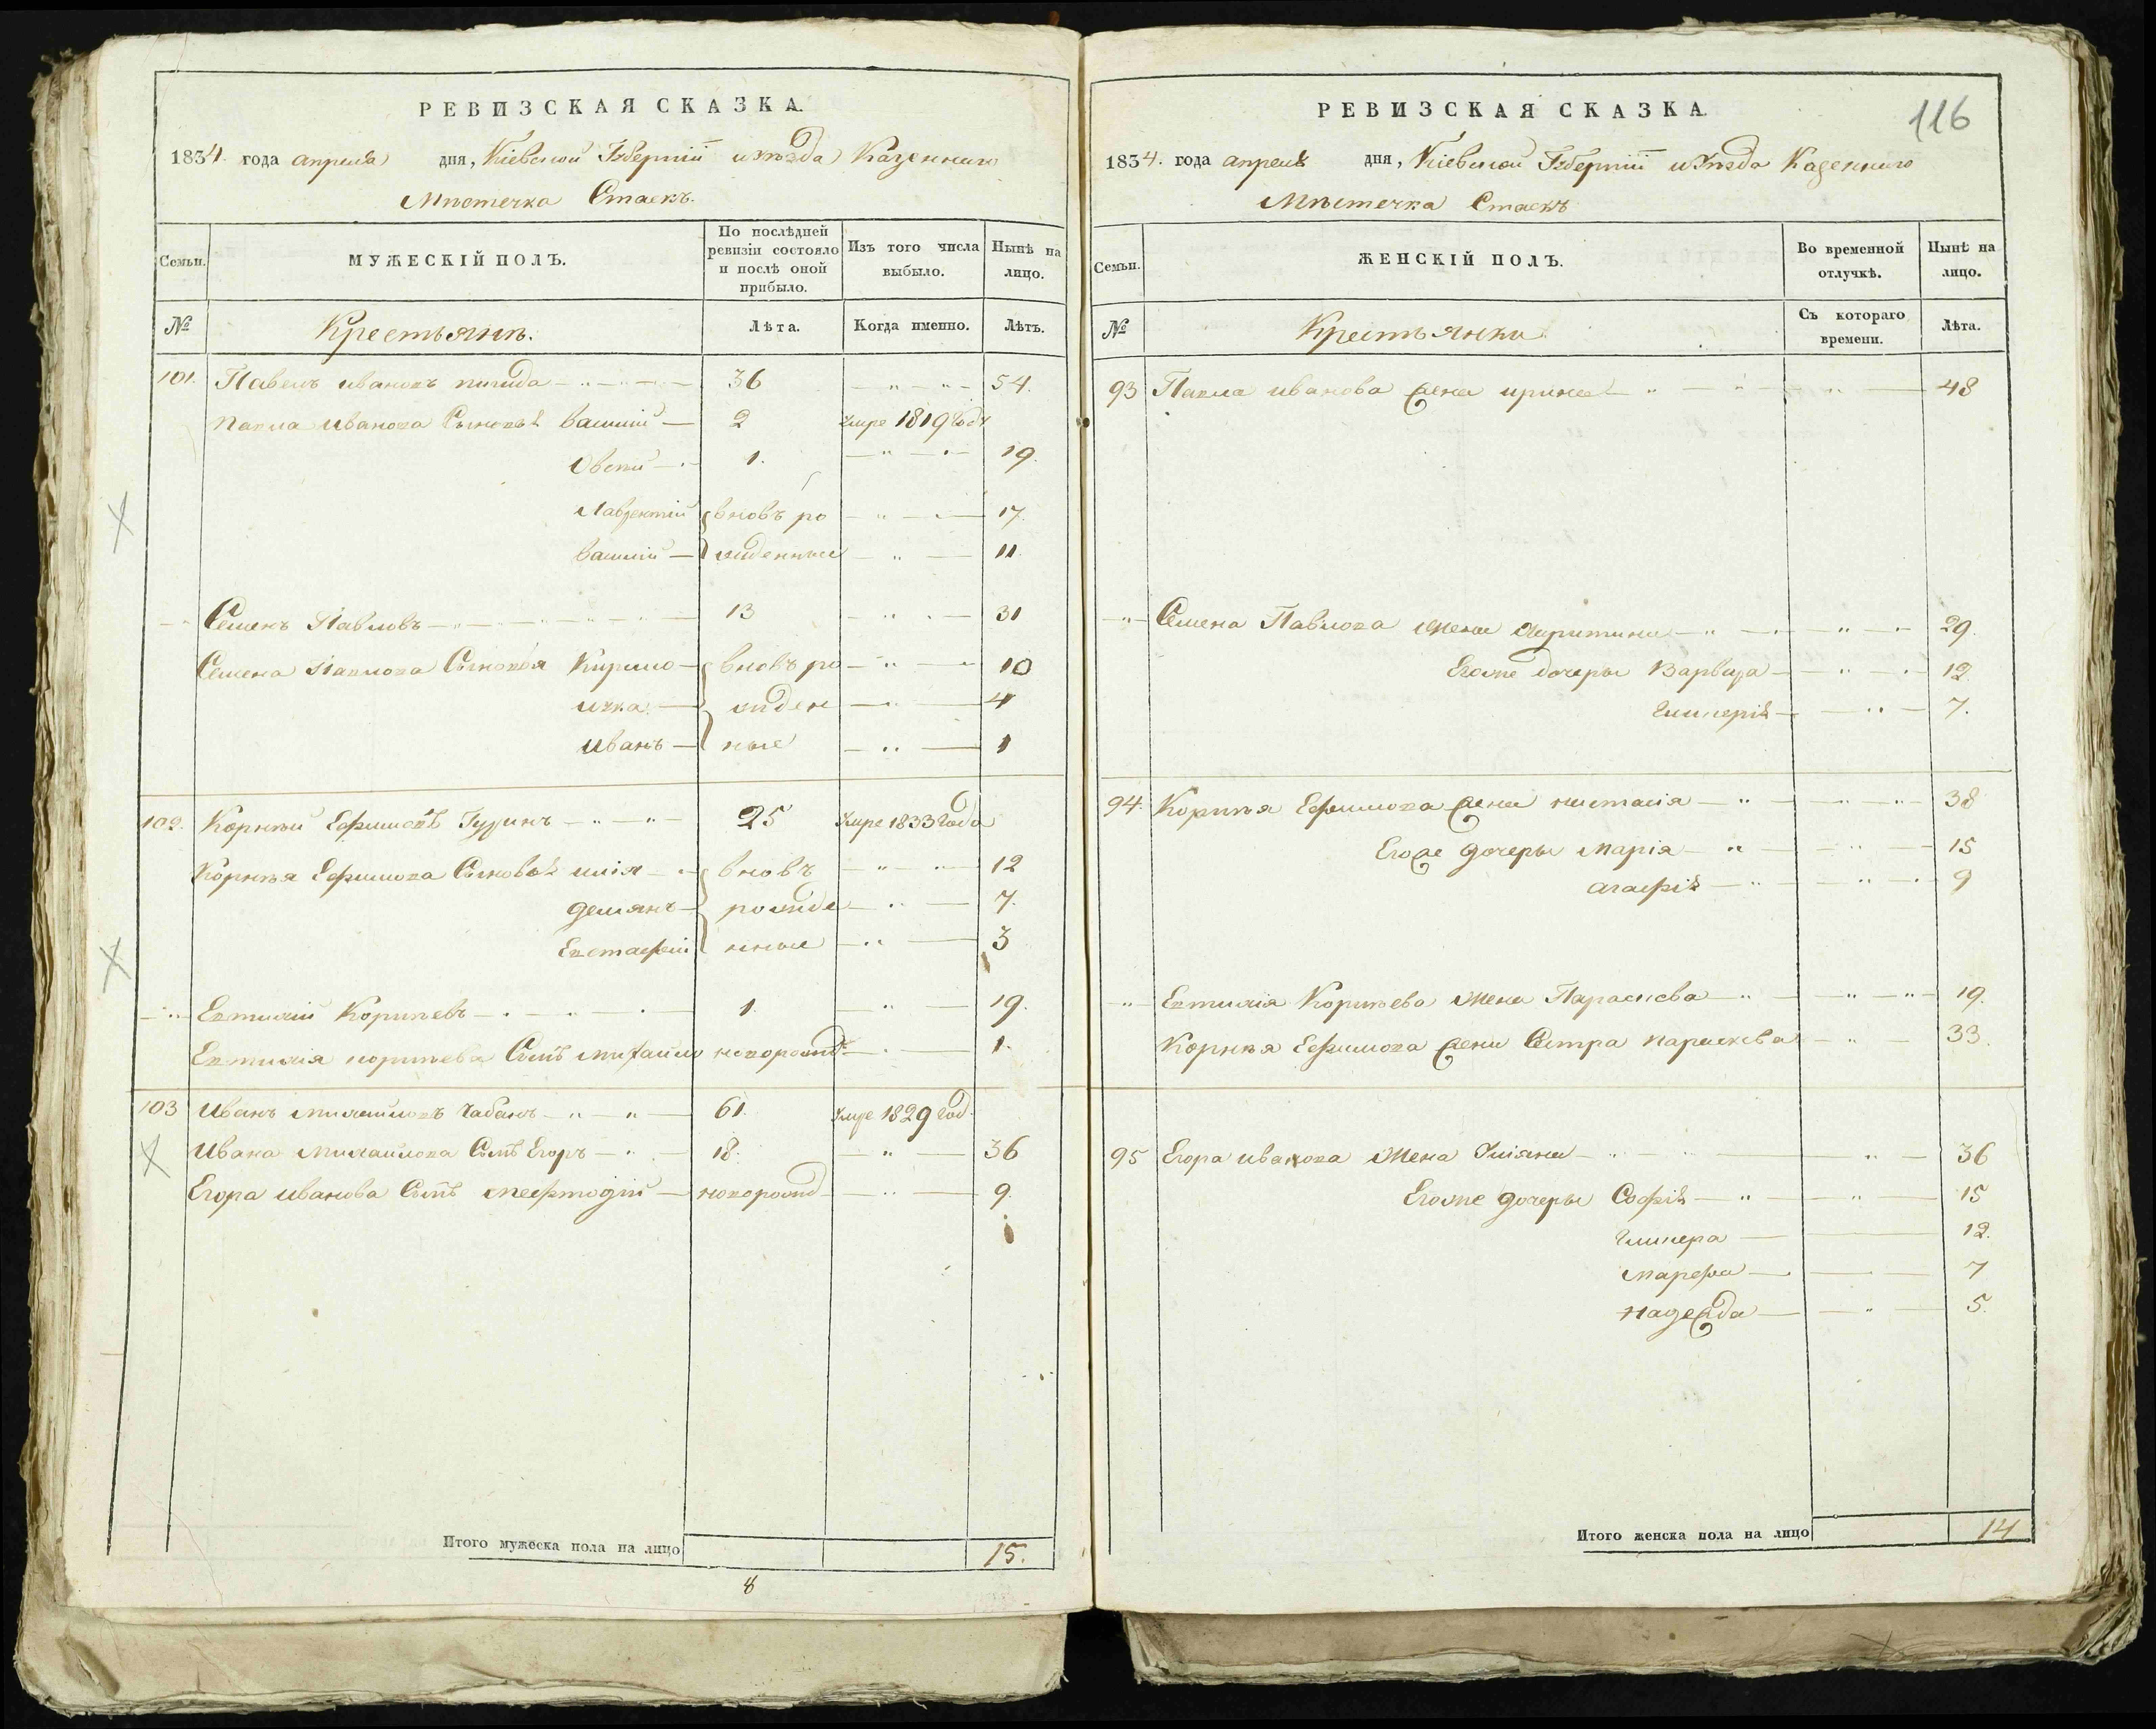 РЕВИЗСКАЯ СКАЗКА.
1834. года апреля дня, Кіевской Губерніи и уѣзда Казеннаго
Мѣстечка Стаекъ.
Семьи.
МУЖЕСКІЙ ПОЛЪ.
По послѣдней ревизіи состояло и послѣ оной прибыло.
Изъ того числа выбыло.
Нынѣ на лицо.
№
Крестьянѣ.
Лѣта.
Когда именно.
Лѣтъ.
101. Павелъ Ивановъ 36 54.
Павла Иванова Сыновья Василій 2 Умре 1819 году
Овсѣй 1. 19.
Лаврентій вновь ро 17.
Василій жденные 11.
Семенъ Павловъ 13 31
Семена Павлова Сыновья Кирило вновь ро 10
жден 4
Иванъ ные 1
102. Корнѣй Ефимовъ Гузинъ 25 Умре 1833 года
Корнѣя Ефимова Сыновья Илія вновь 12
Демянъ рожде 7.
Евстафій нные 3
Евтихій Корнѣевъ 1 19.
Евтихія Корнѣева Сынъ Михайло новорожд 1.
103 Иванъ Михайловъ Чабанъ 61. Умре 1829 год.
Ивана Михайлова Сынъ Егоръ 18. 36
Егора Иванова Сынъ Мефтодій новорожд 9.
Итого мужеска пола на лицо 15.
8
116
РЕВИЗСКАЯ СКАЗКА.
1834. года апреля дня, Кіевской Губерніи и уѣзда Казеннаго
Мѣстечка Стаекъ
Семьи.
ЖЕНСКІЙ ПОЛЪ.
Во временной отлучкѣ.
Нынѣ на лицо.
№
Крестьянки
Съ котораго времени.
Лѣта.
93 Павла Иванова жена Ирина 48
Семена Павлова жена 29.
Егоже дочеры Варвара 12.
7.
94. Корнѣя Ефимова жена Настасія 38
Егоже дочеры Марія 15
Агафія 9
Евтихія Корнѣева жена Параскева 19.
Корнѣя Ефимова жены Сестра Параскева 33.
95 Егора Иванова жена Уліяна 36
Егоже дочеры Софія 15
12.
Марфа 7
Надежда 5.
Итого женска пола на лицо 14